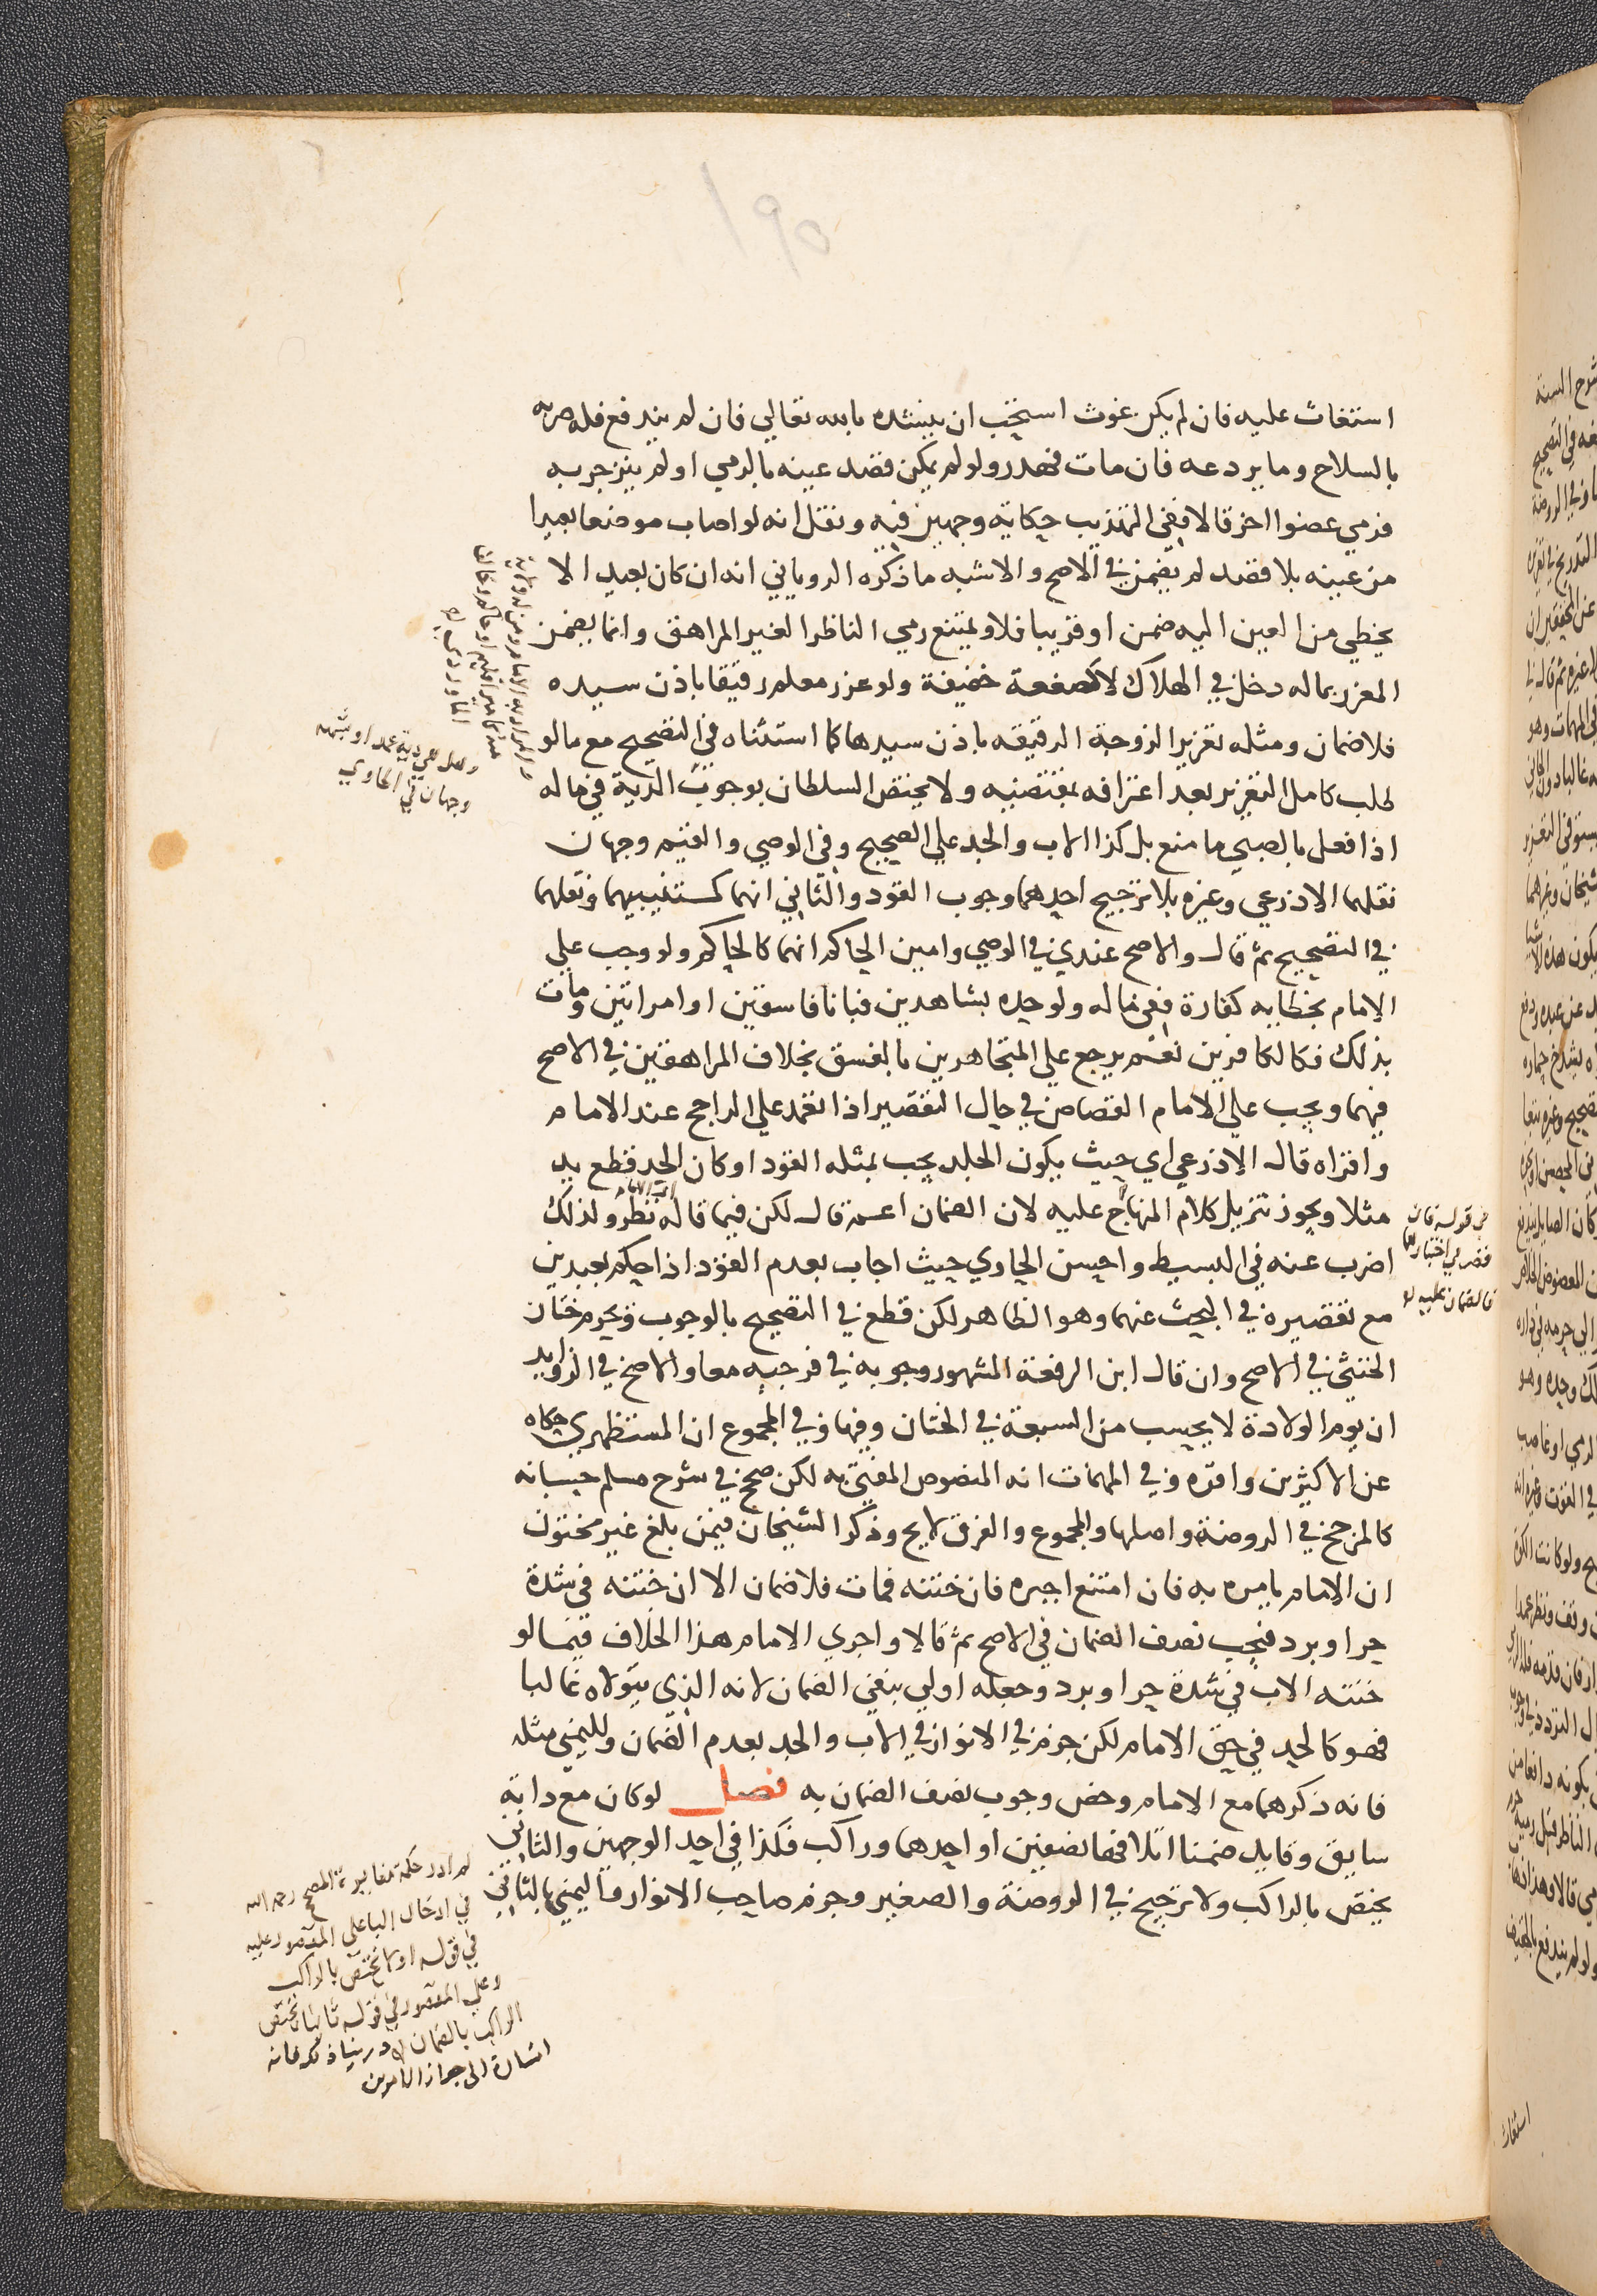 استغاث عليه فان لم يكن غوث استحب ان ينشده بالله تعالي فان لم يندفع فله ضربه
بالسلاح وما يردعه فان مات فهدر ولو لم يمكن قصد عينه بالرمي او لم ينزجر به
فرمي عضوا اخر قالا ففي التهذيب حكاية وجهين فيه ونقل انه لو اصاب موضعا بعيدا
من عينه بلا قصد لم يضمن في الاصح والاشبه ما ذكره الروياني انه ان كان بعيد الا
يخطي من العين اليه ضمن او قريبا فلا ويمتنع رمي الناظر الغير المراهق وانما يضمن
المعزر بما له دخل في الهلاك لا كصفعة خفيفة ولو عزر معلم رقيقا باذن سيده
فلا ضمان ومثله تعزير الزوجة الرقيقه باذن سيدها كما استثناه في التصحيح مع ما لو
طلب كامل التعزير بعد اعترافه بمقتضيه ولا يختص السلطان بوجوب الدية في ماله
اذا فعل بالصبي ما منع بل كذا الاب والجد علي الصحيح وفي الوصي والقيم وجهان
نقلهما الاذرعي وغيره بلا ترجيح احدهما وجوب القود والثاني انهما كمستنيبيهما ونقلهما
في التصحيح ثم قال والاصح عندي في الوصي وامين الحاكم انهما كالحاكم ولو وجب علي
الامام بخطايه كفارة ففي ماله ولو حده بشاهدين فبانا فاسقين او امراتين ومات
بذلك فكالكافرين نعم يرجع علي المتجاهرين بالفسق بخلاف المراهقين في الاصح
فيهما ويجب علي الامام القصاص في حال التقصير اذا تعمد علي الراجح عند الامام
واقراه قال الاذرعي اي حيث يكون الجلد يجب بمثله القود او كان الحد قطع يد
مثلا ويجوز تنزيل كلام المنهاج عليه لان الضمان اعم قال لكن فيما قاله نظر ولذلك
اضرب عنه في البسيط واحسن الحاوي حيث اجاب بعدم القود اذا حكم بعبدين
مع تقصيره في البحث عنهما وهو الظاهر لكن قطع في التصحيح بالوجوب ويحرم ختان
الخنثي في الاصح وان قال ابن الرفعة المشهور وجوبه في فرجيه معا والاصح في الزوايد
ان يوم الولادة لا يحسب من السبعة في الختان وفيها وفي المجموع ان المستظهري حكاه
عن الاكثرين واقره وفي المهمات انه المنصوص المفتي به لكن صحح في شرح مسلم حسبانه
كالمرجح في الروضة واصلها والمجموع والفرق لايح وذكر الشيخان فيمن بلغ غير مختون
ان الامام يامره به فان امتنع اجبره فان ختنه فمات فلا ضمان الا ان ختنه في شدة
حر او برد فيجب نصف الضمان في الاصح ثم قالا واجري الامام هذا الخلاف فيما لو
ختنه الاب في شدة حر او برد وجعله اولي بنفي الضمان لانه الذي يتولاه غالبا
فهو كالحد في حق الامام لكن جزم في الانوار في الاب والجد بعدم الضمان ولليمني مثله
فانه ذكرهما مع الامام وخص وجوب نصف الضمان به فصل لو كان مع دابة
سايق وقايد ضمنا اتلافها نصفين او احدهما وراكب فكذا في احد الوجهين والثاني
يختص بالراكب ولا ترجيح في الروضة والصغير وجزم صاحب الانوار واليمني بالثاني
اي الامام
وهل هي دية عمد او شبهه
وجهان في الحاوي
الماوردي
من قوله فان
قصر في اختبارهما
فالضمان عليه
لم ادر حكمة مغايرة المصنف رحمه الله
في ادخال البا على المقصور عليه
في قوله اولا يختص بالراكب
وعلي المقصور في قوله ثانيا يختص
الراكب بالضمان
اشارة الى جواز الامرين